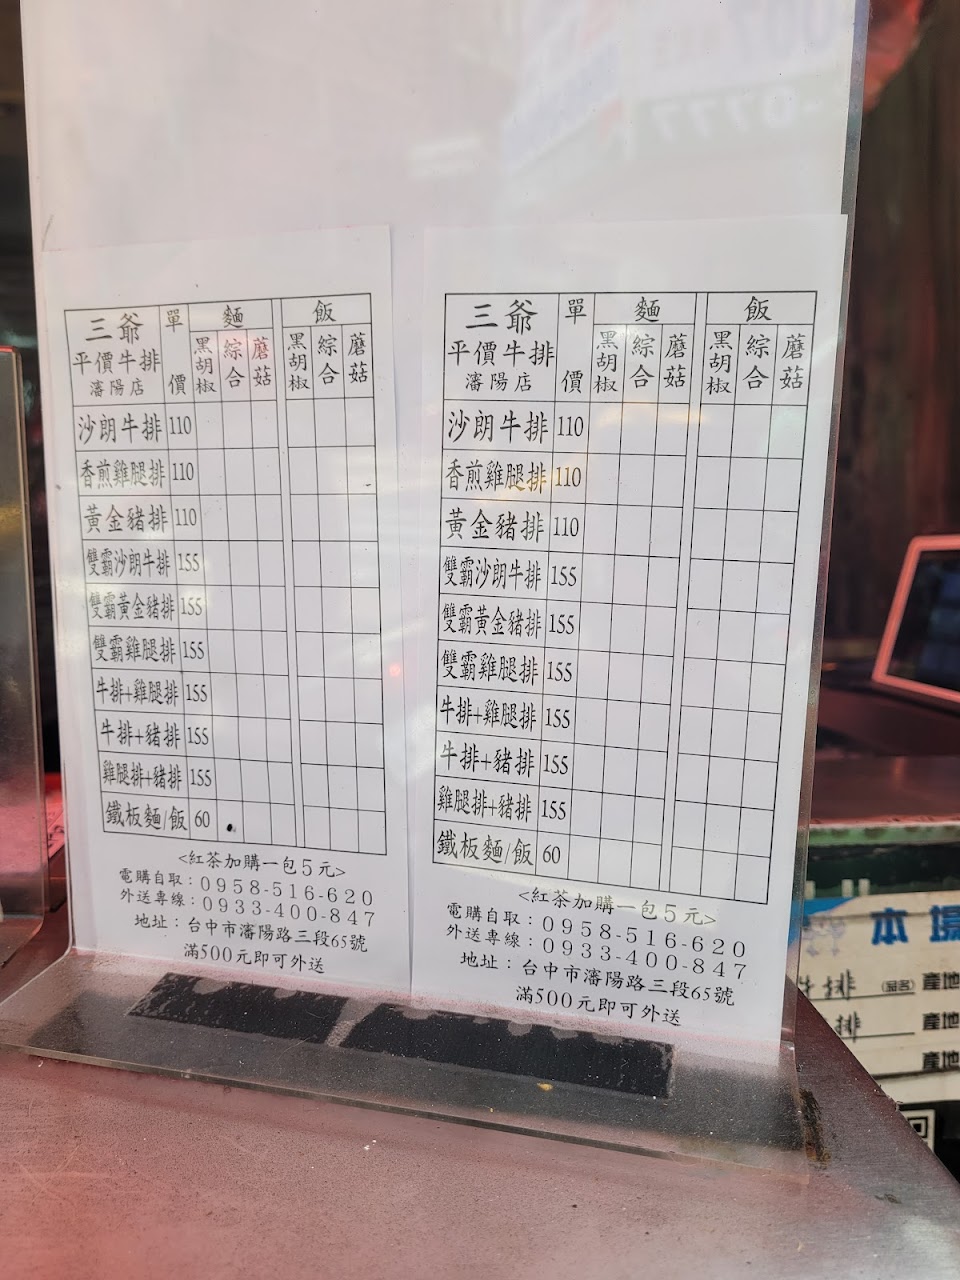 三爺
平價牛排
瀋陽店
單價
麵
飯
黑胡椒 綜合 蘑菇 黑胡椒 綜合 蘑菇
沙朗牛排 110
香煎雞腿排 110
黃金豬排 110
雙霸沙朗牛排 155
雙霸黃金豬排 155
雙霸雞腿排 155
牛排+雞腿排 155
牛排+豬排 155
雞腿排+豬排 155
鐵板麵/飯 60
<紅茶加購一包5元>
電購自取：0958-516-620
外送專線：0933-400-847
地址：台中市瀋陽路三段65號
滿500元即可外送
三爺
平價牛排
瀋陽店
單價
麵
飯
黑胡椒 綜合 蘑菇 黑胡椒 綜合 蘑菇
沙朗牛排 110
香煎雞腿排 110
黃金豬排 110
雙霸沙朗牛排 155
雙霸黃金豬排 155
雙霸雞腿排 155
牛排+雞腿排 155
牛排+豬排 155
雞腿排+豬排 155
鐵板麵/飯 60
<紅茶加購一包5元>
電購自取：0958-516-620
外送專線：0933-400-847
地址：台中市瀋陽路三段65號
滿500元即可外送
本場
牛排 (品名) 產地
排 產地
產地